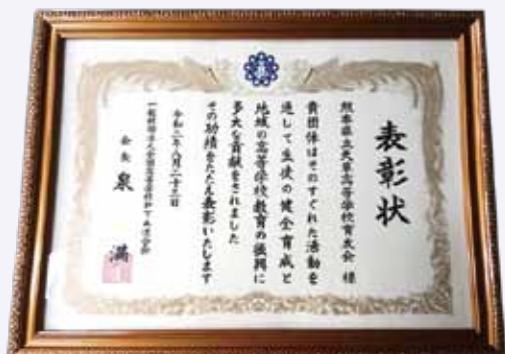 表彰状
熊本県立天草高等学校育友会 様
貴団体はそのすぐれた活動を
通して生徒の健全育成と
地域の高等学校教育の振興に
多大な貢献をされました
その功績をたたえ表彰いたします
令和二年八月二十三日
一般社団法人全国高等学校PTA連合会
会長 泉 満